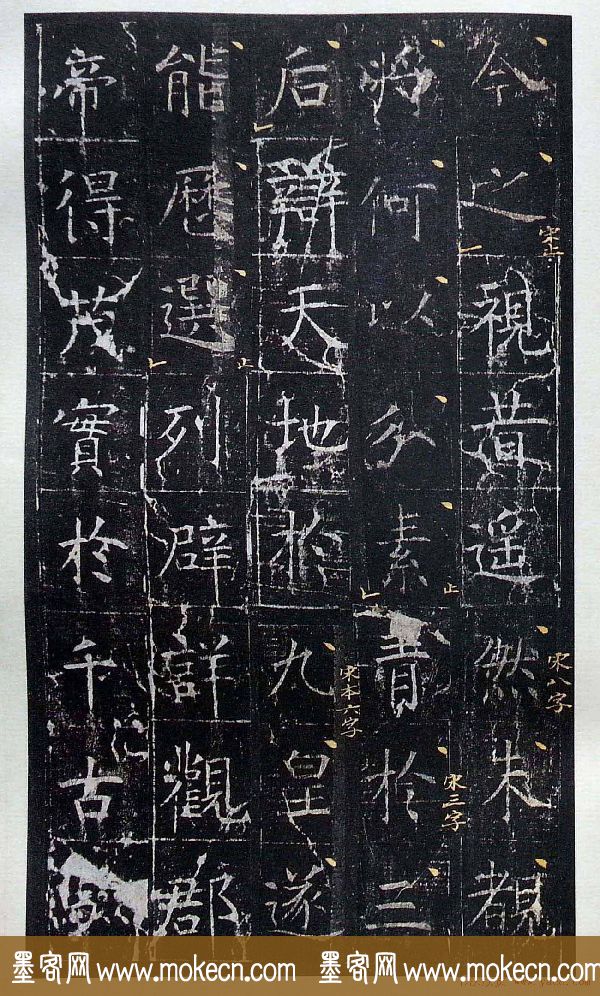 今之視昔遥然未覩
將何以分素青於三
后辯天地於九皇遂
能曆選列辟詳觀郡
帝得茂實於千古
宋八字
宋三字
宋本六字
止
止
墨客网 www.mokecn.com 墨客网 www.mokecn.com